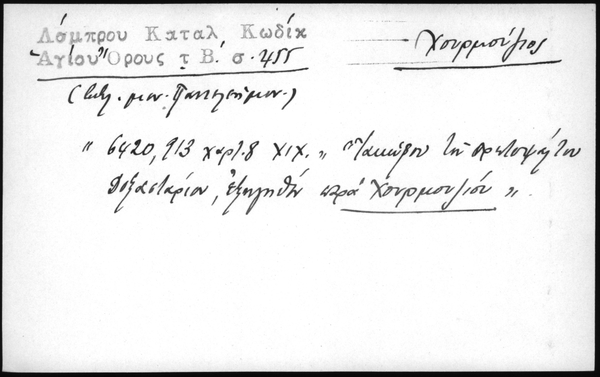 Λάμπρου Καταλ Κωδίκ
Ἁγίου Ὄρους τ Β΄. σ. 455
Χουρμούζιος
(Βιβλ. μον. Παντελεήμον.)
" 6420, 913 χαρτ. 8 XIX. " Ἰακώβου τοῦ πρωτοψάλτου
Δοξαστάριον, ἐξηγηθὲν παρὰ Χουρμουζίου ".